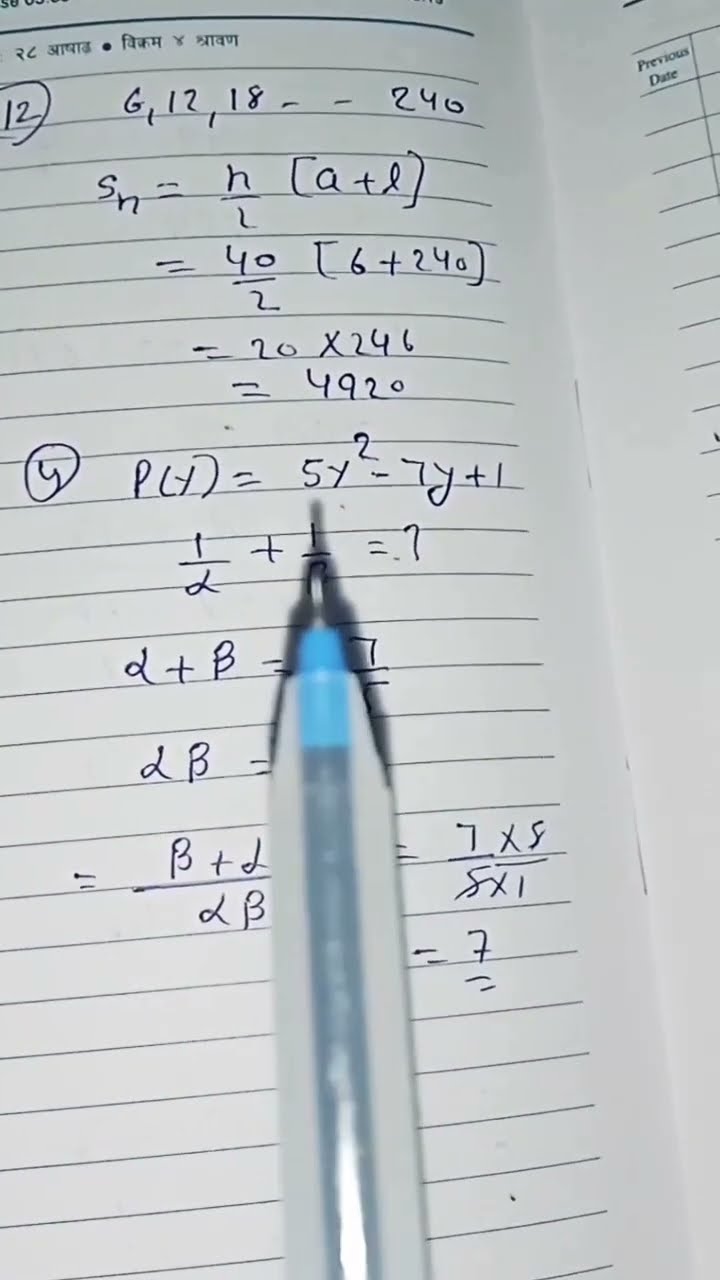 २८ आषाढ ● विक्रम ४ श्रावण
Previous
Date
12) 6, 12, 18 - - 240
Sn = n/2 [a + l]
= 40/2 [6 + 240]
= 20 × 246
= 4920
P(y) = 5y² - 7y + 1
1/α + 1/ = ?
α + β = 7/
αβ =
= β + α / αβ = 7 × 5 / 5 × 1
= 7